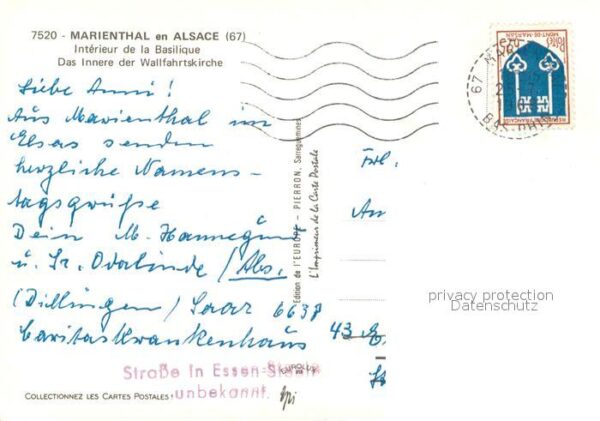 7520 - MARIENTHAL en ALSACE (67)
Intérieur de la Basilique
Das Innere der Wallfahrtskirche
Liebe Anni!
Aus Marienthal im
Elsas senden
herzliche Namens-
tagsgrüße
Dein M. Hannegünd
u. Sr. Odalinde / Abs.
(Dillingen / Saar 6638
Caritaskrankenhaus
Straße in Essen-
unbekannt.
COLLECTIONNEZ LES CARTES POSTALES
Edition de l'EUROPE - PIERRON, Sarreguemines
L'Imprimeur de la Carte Postale
Frl.
An
43 E
privacy protection
Datenschutz
67
BAS-RHIN
MONT-DE-MARSAN
Postes